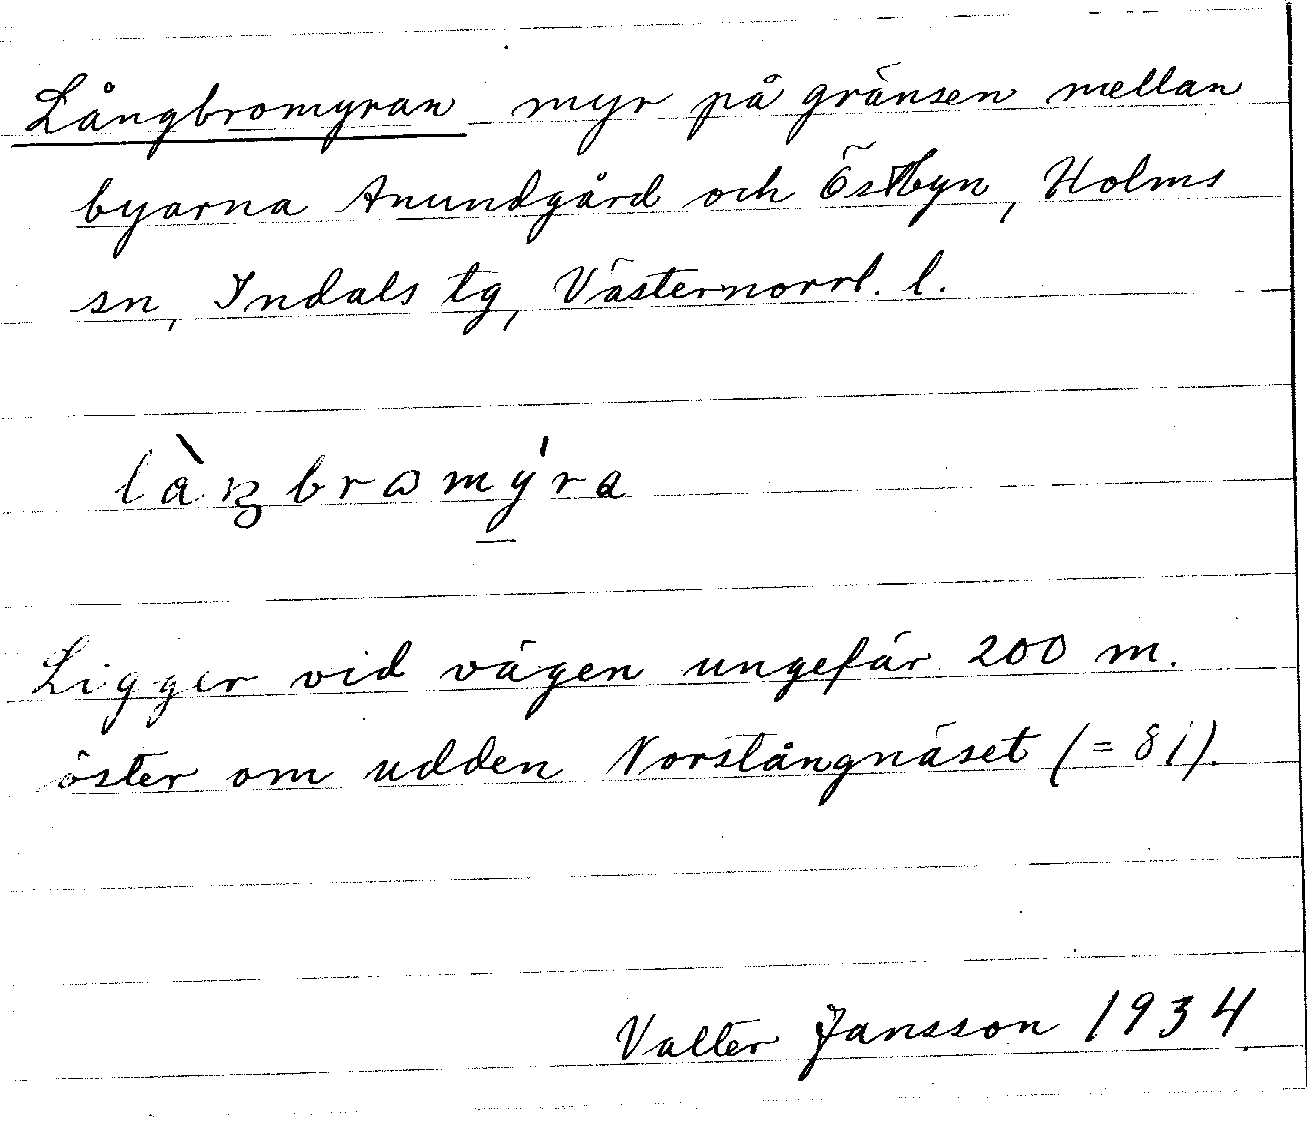 Långbromyran myr på gränsen mellan
byarna Anundgård och Östbyn, Holms
sn, Indals tg, Västernorrl. l.
Ligger vid vägen ungefär 200 m.
öster om udden Norstångnäset (= 81).
Valter Jansson 1934.